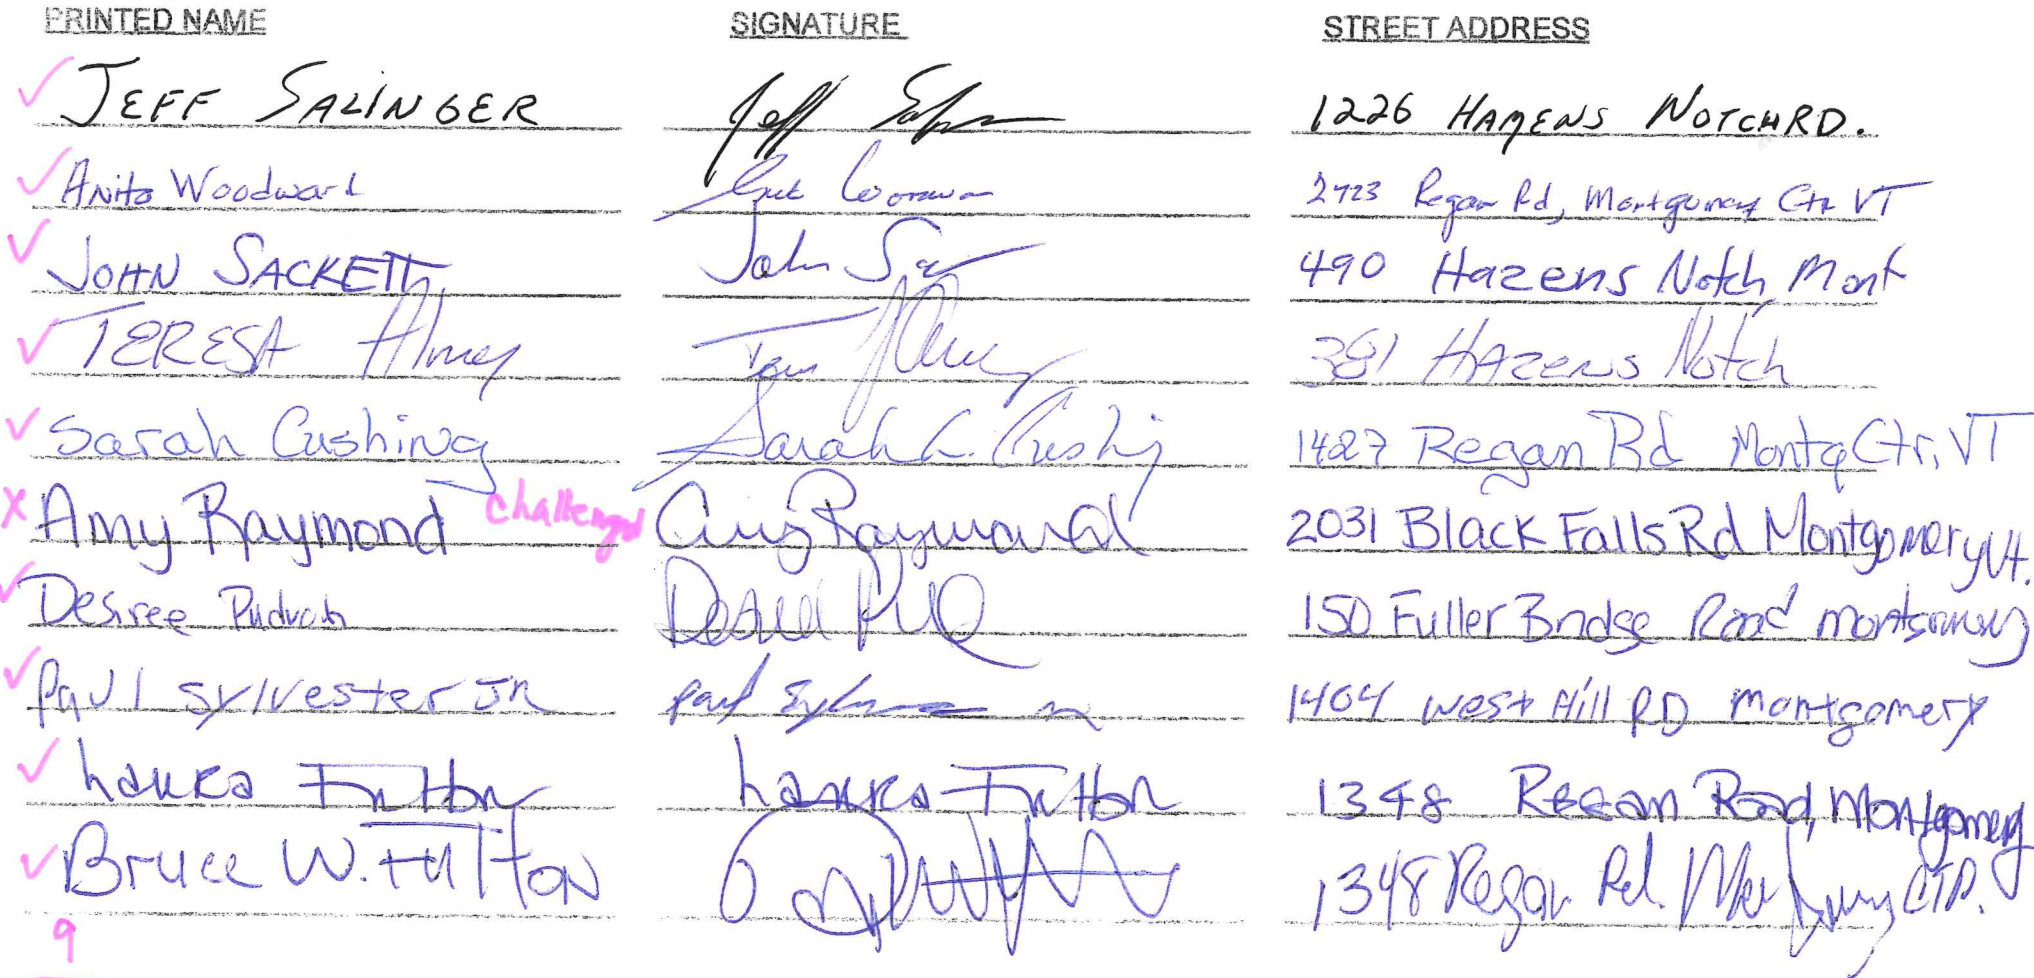 PRINTED NAME SIGNATURE STREET ADDRESS
✓ JEFF SALINGER Jeff 1226 HAZENS NOTCH RD.
✓ Anita Woodward 2723 Regan Rd, Montgomery Ctr VT
✓ JOHN SACKETT John 490 Hazens Notch Mont
✓ TERESA Almey 381 HAZENS Notch
✓ Sarah Cushing Sarah L. Cushing 1427 Regan Rd Montg Ctr, VT
X Amy Raymond challenged Amy Raymond 2031 Black Falls Rd Montgomery Vt.
✓ Desiree Pudvah 150 Fuller Bridge Road Montgomery
✓ Paul Sylvester JR Paul 1404 West Hill RD Montgomery
✓ Laura Fulton Laura Fulton 1348 Regan Road, Montgomery
✓ Bruce W. Fulton 1348 Regan Rd. Montgomery CTR.
9